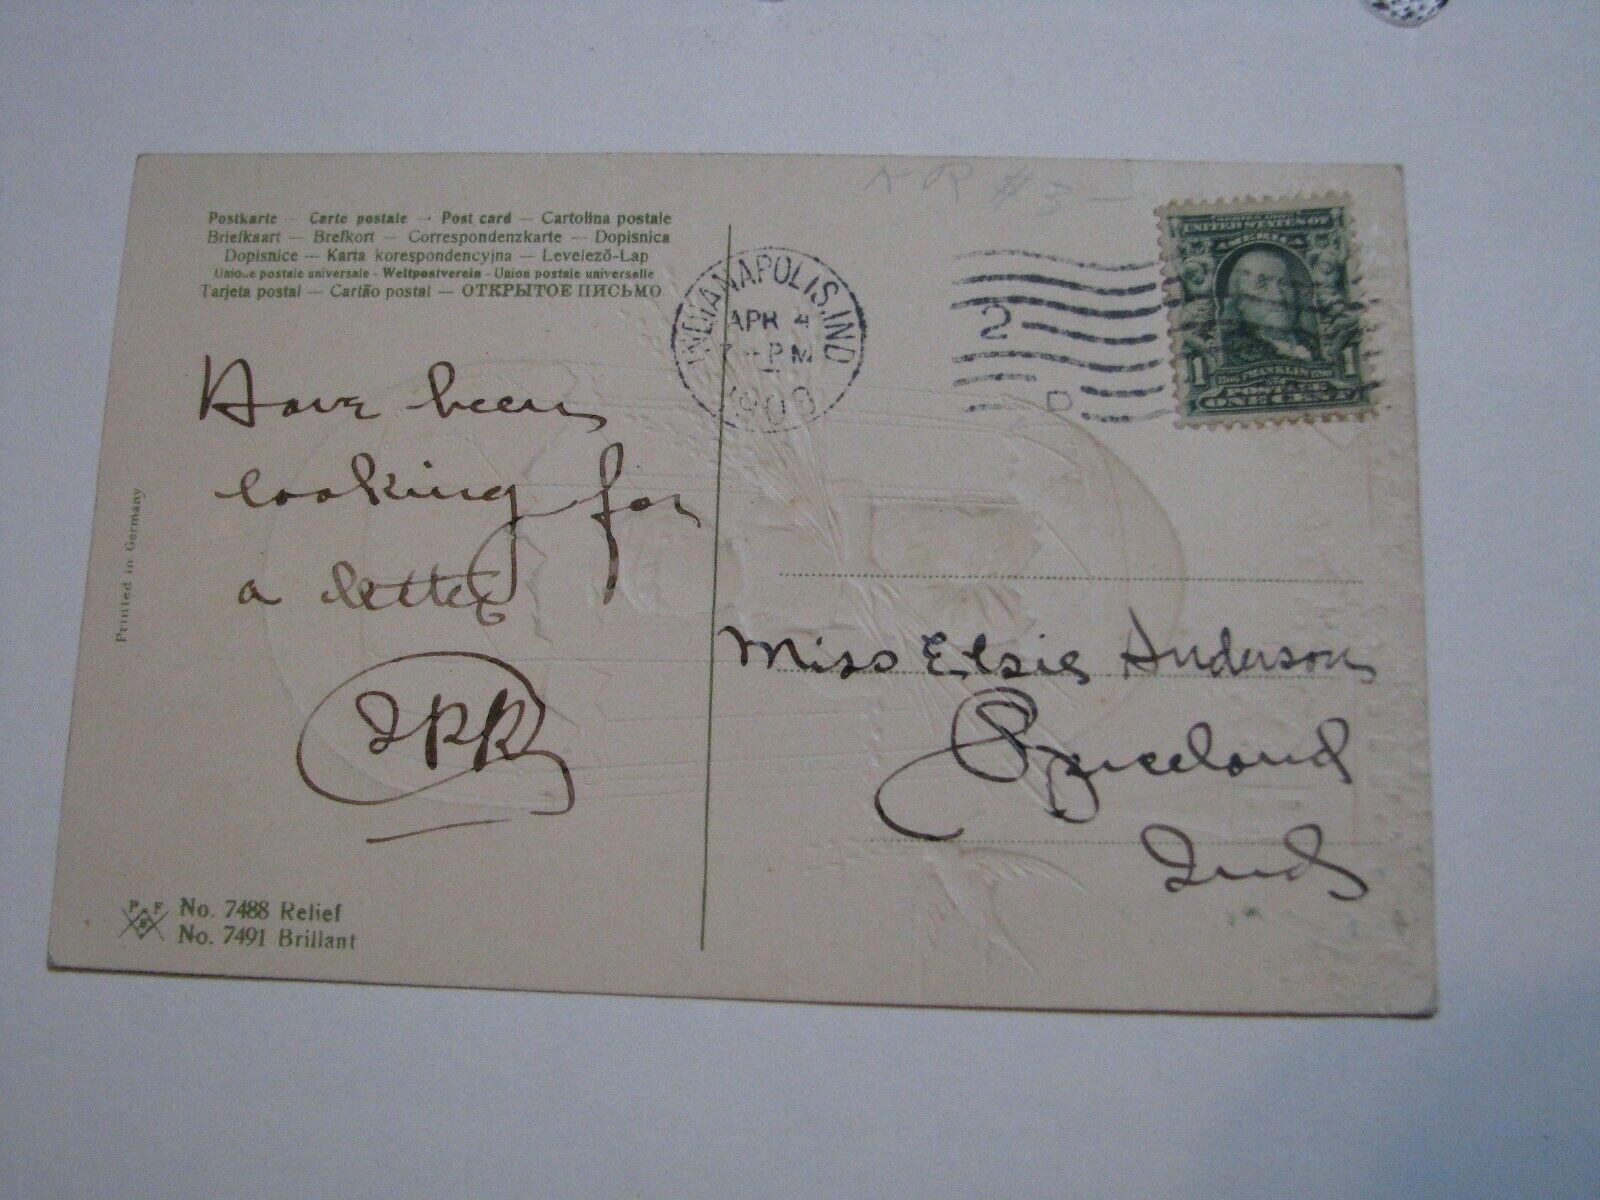 Postkarte — Carte postale — Post card — Cartolina postale
Briefkaart — Brefkort — Correspondenzkarte — Dopisnica
Dopisnice — Karta korespondencyjna — Levelező-Lap
Union postale universale - Weltpostverein - Union postale universelle
Tarjeta postal — Cartão postal — ОТКРЫТОЕ ПИСЬМО
INDIANAPOLIS, IND
APR 4
PM
190
2
D
UNITED STATES OF
AMERICA
FRANKLIN
1 1
ONE CENT
Have been
looking for
a letter
Printed in Germany
Miss Elsie Anderson
Spiceland
Ind
P F
No. 7488 Relief
No. 7491 Brillant